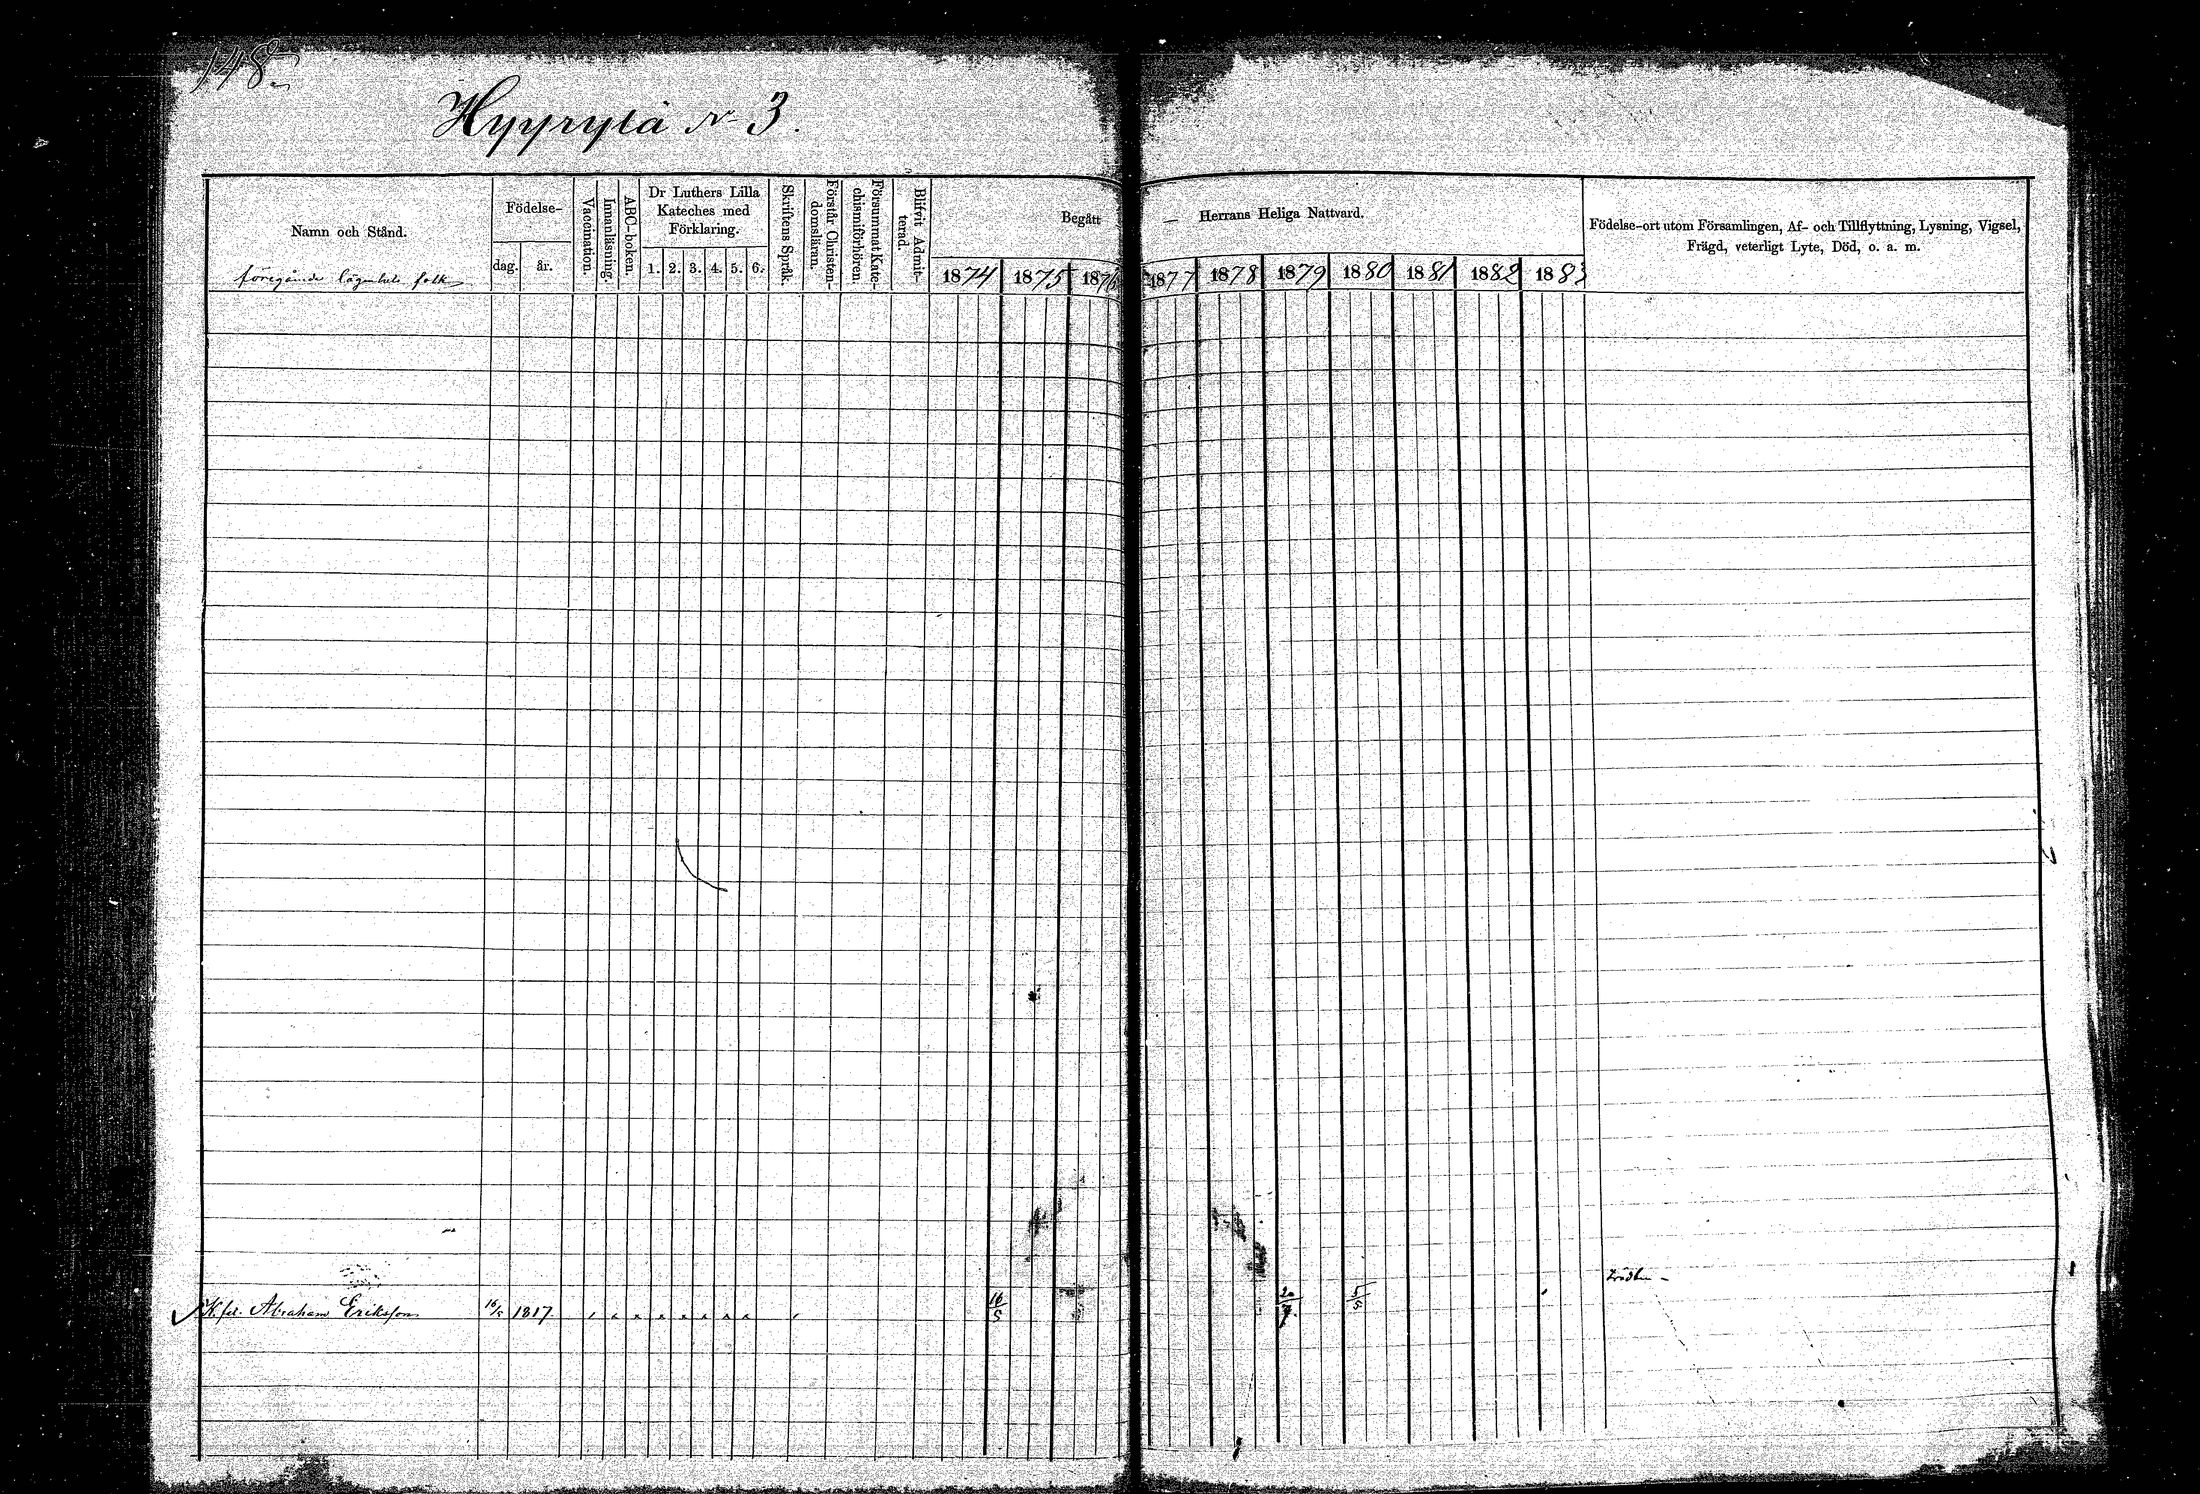 148.
Hyyrylä No 3.
Namn och Stånd.
föregående lägenhets folk
Födelse-
dag.
år.
Vaccination.
Innanläsning.
ABC-boken.
Dr Luthers Lilla
Kateches med
Förklaring.
1. 2. 3. 4. 5. 6.
Skriftens Språk.
Förstår Christen-
domsläran.
Försummat Kate-
chismiförhören.
Blifvit Admit-
terad.
Begått — Herrans Heliga Nattvard.
1874 1875 1876 1877 1878 1879 1880 1881 1882 1883
Födelse-ort utom Församlingen, Af- och Tillflyttning, Lysning, Vigsel,
Frägd, veterligt Lyte, Död, o. a. m.
Abraham Eriksson 16/5 1817 16/5 20/7 5/5